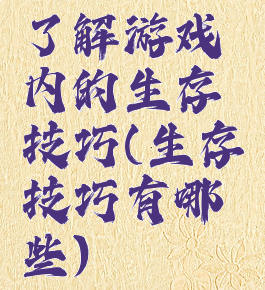 了解游戏
内的生存
技巧(生存
技巧有哪
些)